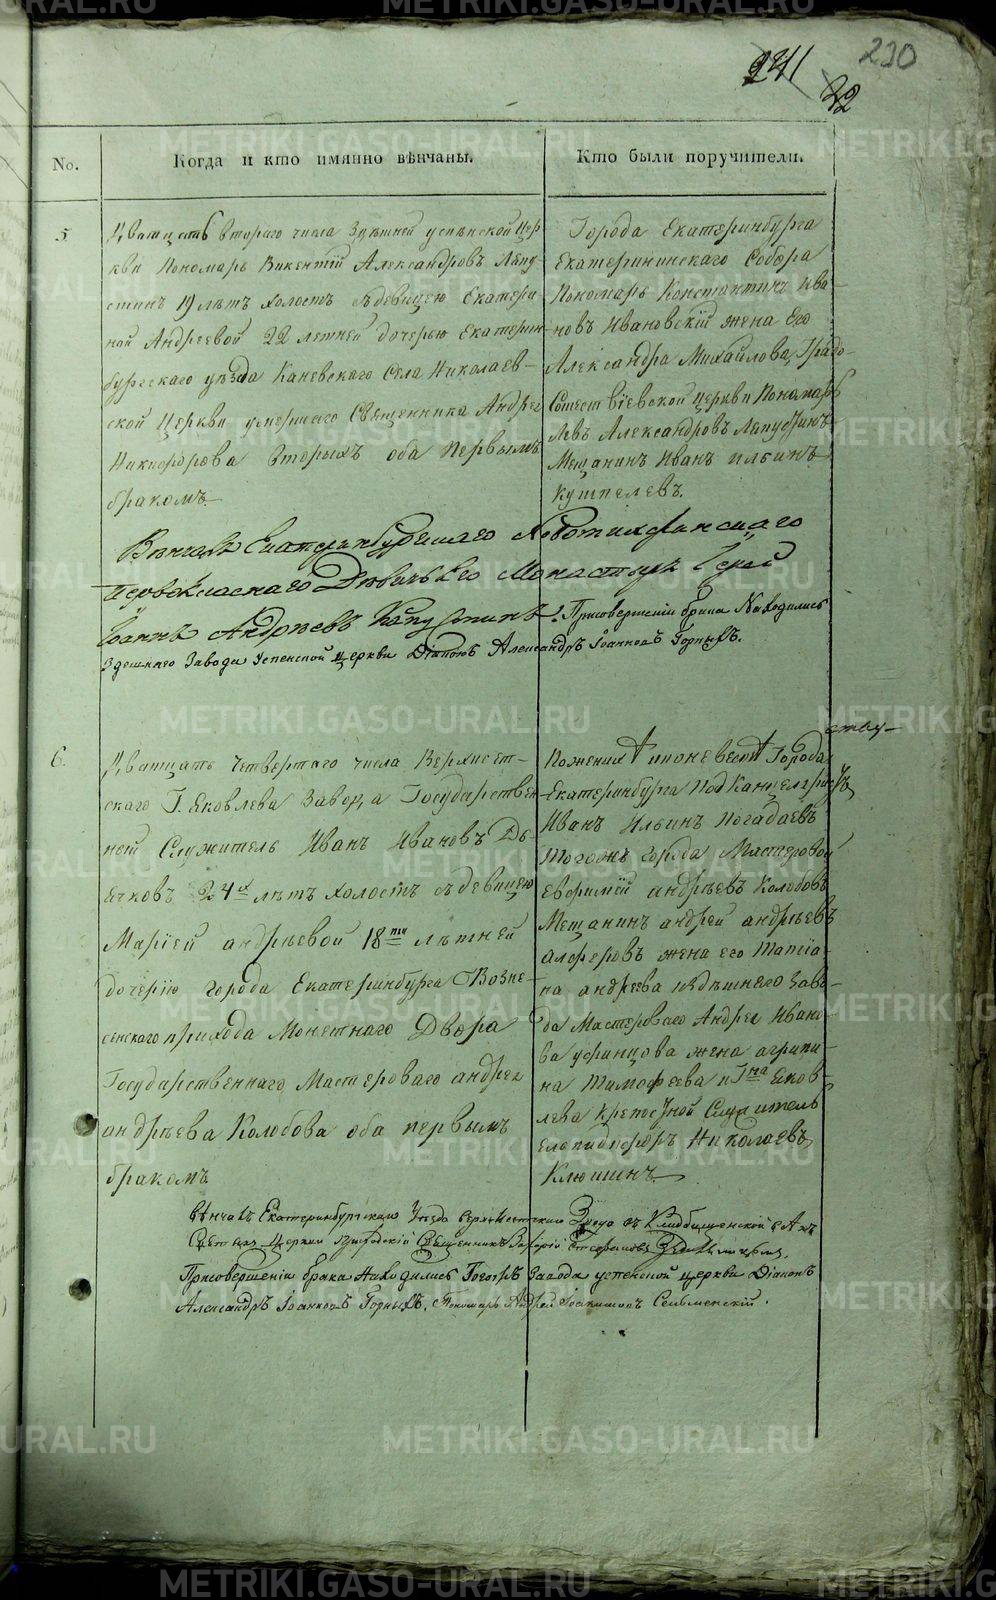 241
22
230
No.
Когда и кто имянно вѣнчаны.
Кто были поручители.
5
Дватцать втораго числа Здѣшней успѣнской Цер
кви Пономарь Викентій Александровъ Лапу
стинъ 19 лѣтъ холостъ съ девицею Екатери
ной Андреевой 22 летней дочерью Екатерин
бургскаго уѣзда Каневскаго Села Николаев-
ской Церкви умершаго Священника Андрея
Никифорова Вторыхъ оба первымъ
бракомъ
Города Екатеринбурга
Екатерининскаго Собора
Пономарь Константинъ Ива-
новъ Ивановскій жена Его
Александра Михайлова, Градо-
Сошествіевской Церкви Пономарь
Левъ Александровъ Лапустинъ
Мещанинъ Иванъ Ильинъ
Кушпелевъ.
Вѣнчалъ Екатеринбургскаго Новотихвинскаго
первокласнаго Дѣвичьяго Монастыря Іерей
Іоаннъ Андрѣевъ Капустинъ. Присовершеніи брака Находились
Здешняго Завода Успенской церкви Діаконъ Александръ Іоанновъ Горныхъ.
6.
Дватцать четвертаго числа Верхисет-
скаго Г. Яковлева Завода Государствен
ной Служитель Иванъ Ивановъ Дь-
ячковъ 24х лѣтъ холостъ съ девицею
Маріей андрѣевой 18ти лѣтней
дочерію города Екатеринбурга Возне-
сенскаго прихода Монетнаго Двора
Государственнаго Мастероваго андрея
андрѣева Колобова оба первымъ
бракомъ
По женихѣ и по невестѣ Города
Екатеринбурга Подканцеляристъ
Иванъ Ильинъ Погадаевъ
Тогожъ города Мастеровой
Евфимій андрѣевъ Колобовъ
Мещанинъ андрей андрѣевъ
алферовъ жена его Татіа-
на андреева издѣшнего Заво-
да Мастероваго Андрея Ивано-
ва уфинцова жена агрипи-
на Тимофеева и Гна Яков-
лева Крепостной Служитель
Елпидифоръ Николаевъ
Клюшинъ
вѣнчалъ Екатеринбургскаго Уезда верхисетскаго Завода
Церкви Приходскій Священникъ
Присовершеніи брака Находились Тогожъ Завода успенской церкви Діаконъ
Александръ Іоанновъ Горныхъ, Пономарь Андрей Сельменскій.